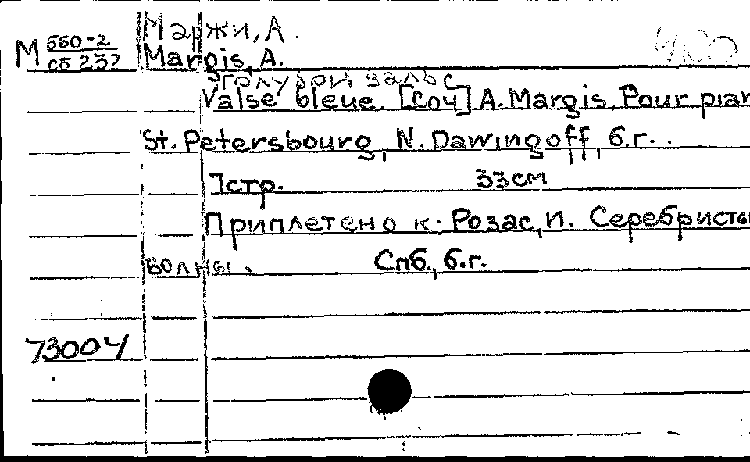 Маржи, А.
М 550-2
сб 237
Margis, A.
Голубой вальс
Valse bleue. [Соч] A. Margis. Pour pian
St. Petersbourg, N. Dawingoff, б.г..
7стр. 33см
Приплетено к: Розас, И. Серебристы
волны. Спб., б.г.
73004